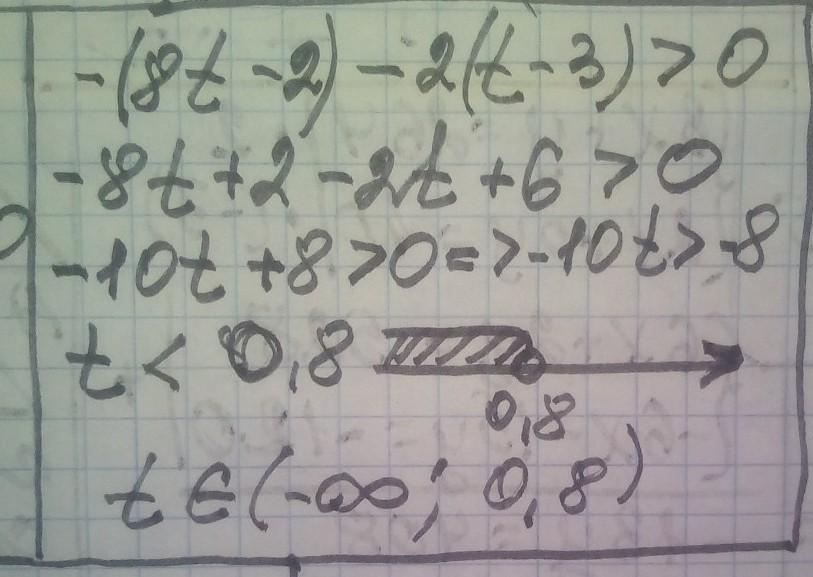 -(8t-2)-2(t-3)>0
-8t+2-2t+6>0
-10t+8>0=>-10t>-8
t<0,8
0,8
t∈(-∞; 0,8)